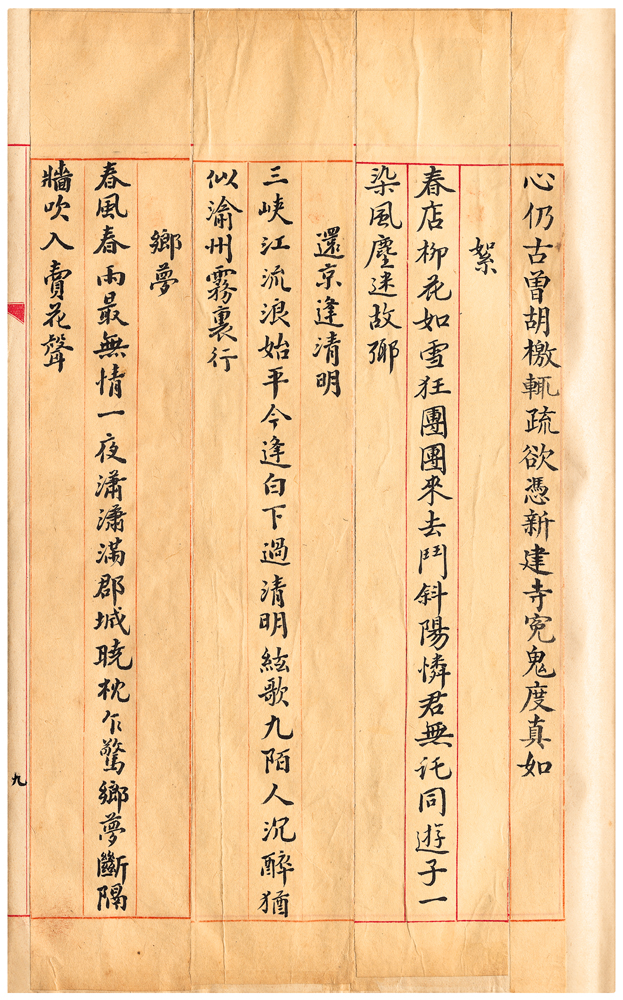 心仍古曾胡檄輒疏欲憑新建寺冤鬼度真如
絮
春店柳花如雪狂團團來去鬥斜陽憐君無託同遊子一
染風塵迷故鄉
還京逢清明
三峽江流浪始平今逢白下過清明絃歌九陌人沉醉猶
似渝州霧裏行
鄉夢
春風春雨最無情一夜瀟瀟滿郡城曉枕乍驚鄉夢斷隔
牆吹入賣花聲
九